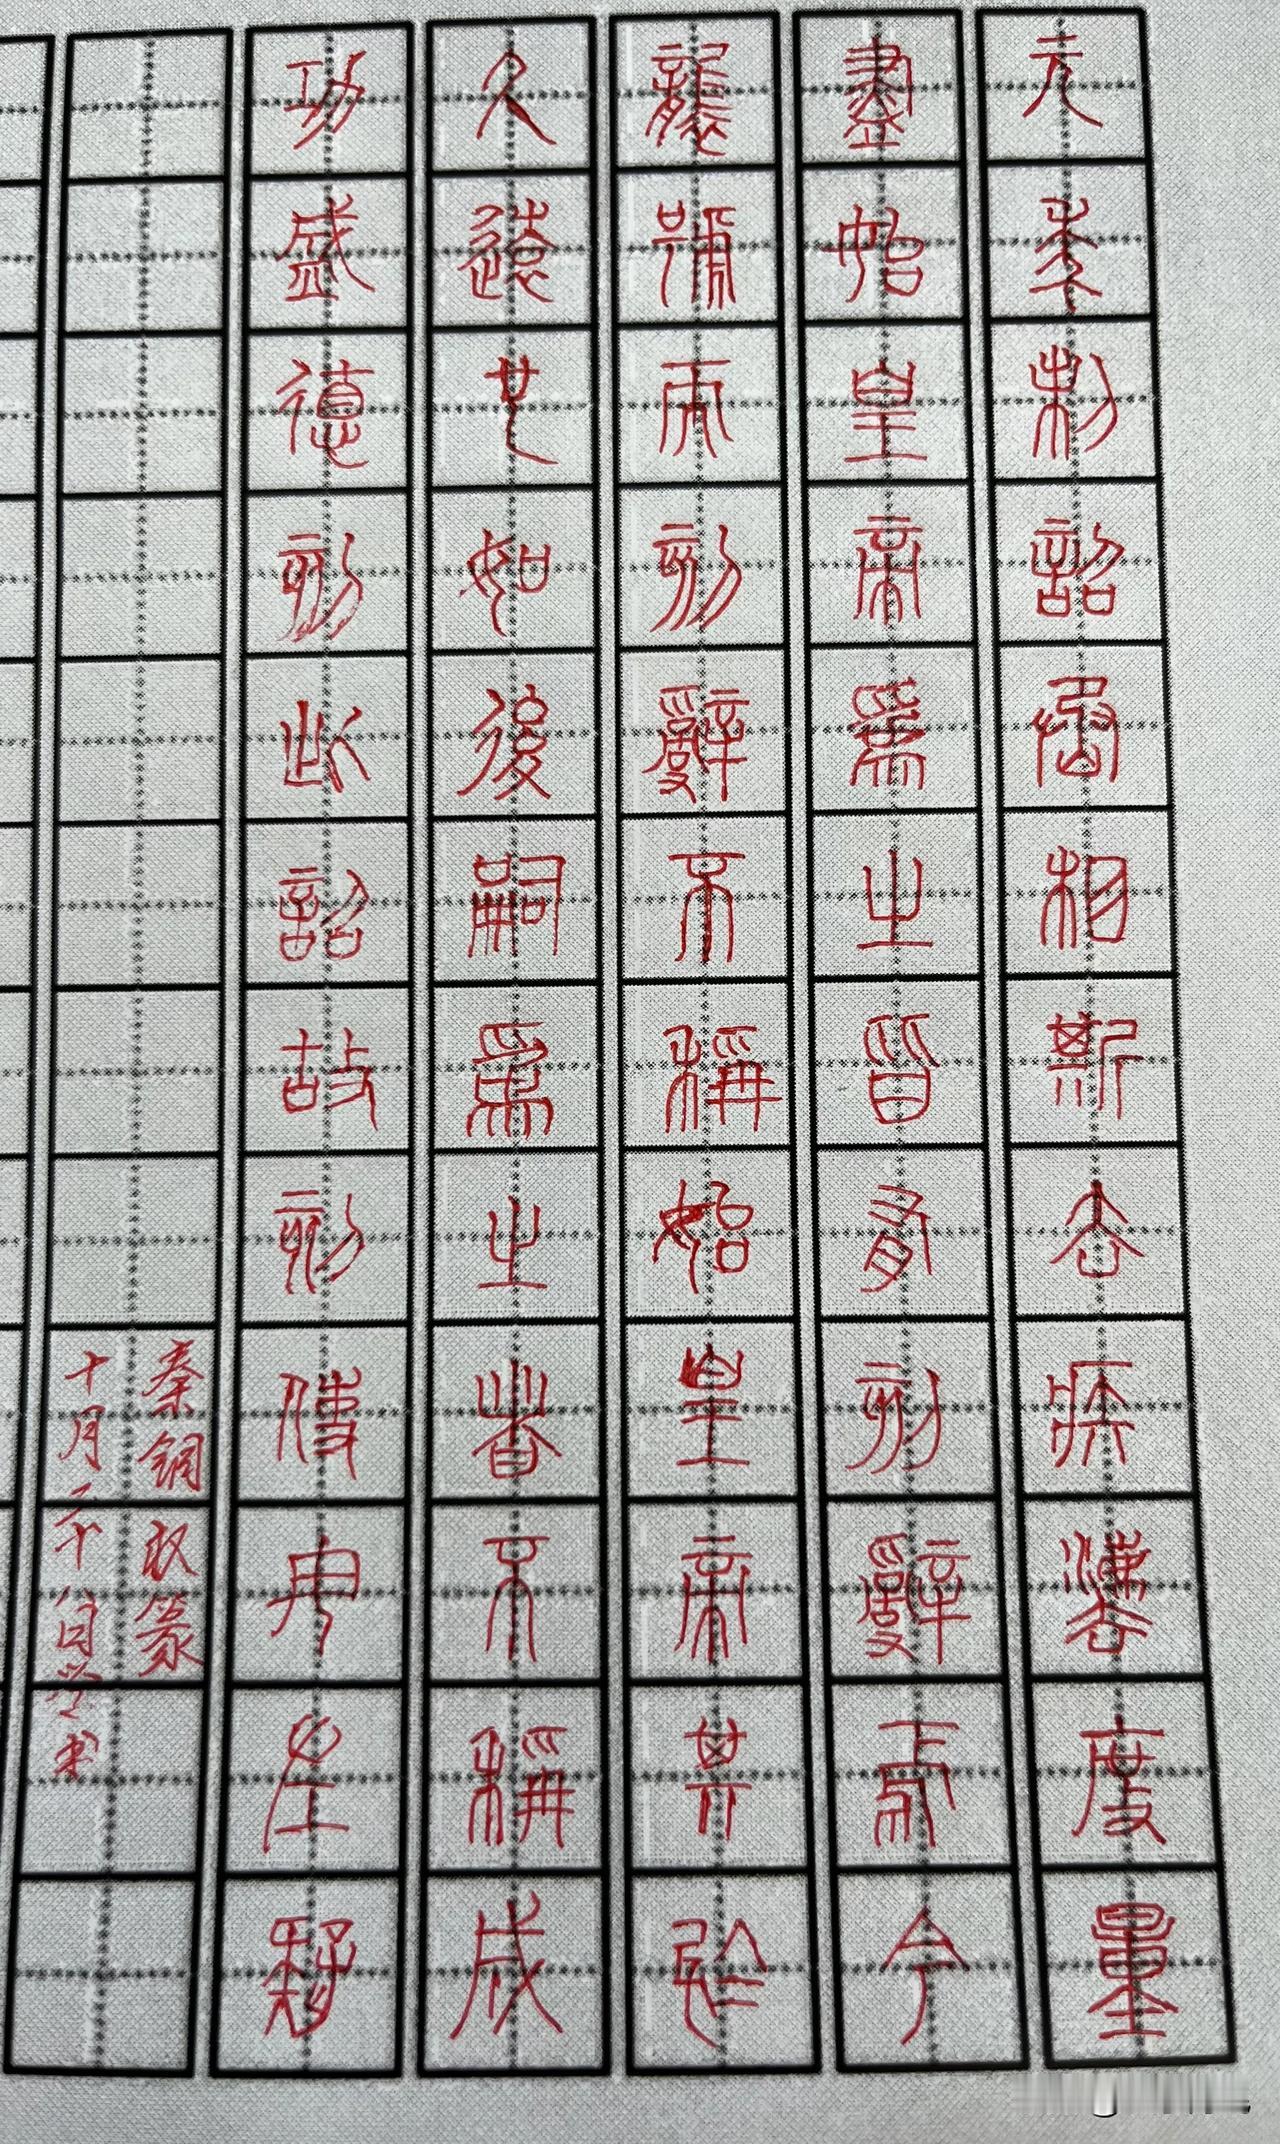 元年制詔丞相斯去疾灋度量
盡始皇帝為之皆有刻辭焉今
襲號而刻辭不稱始皇帝其於
久遠也如後嗣為之者不稱成
功盛德刻此詔故刻使毋左疑
秦铜权篆
十月二十八日学书